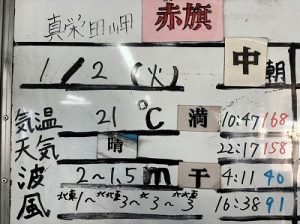 真栄田岬 赤旗
1/2(火) 中 朝
気温 21℃ 満 10:47 168
天気 晴 22:17 158
波 2~1.5m 干 4:11 40
風 北東1~北北東3~北3~北3 16:38 91